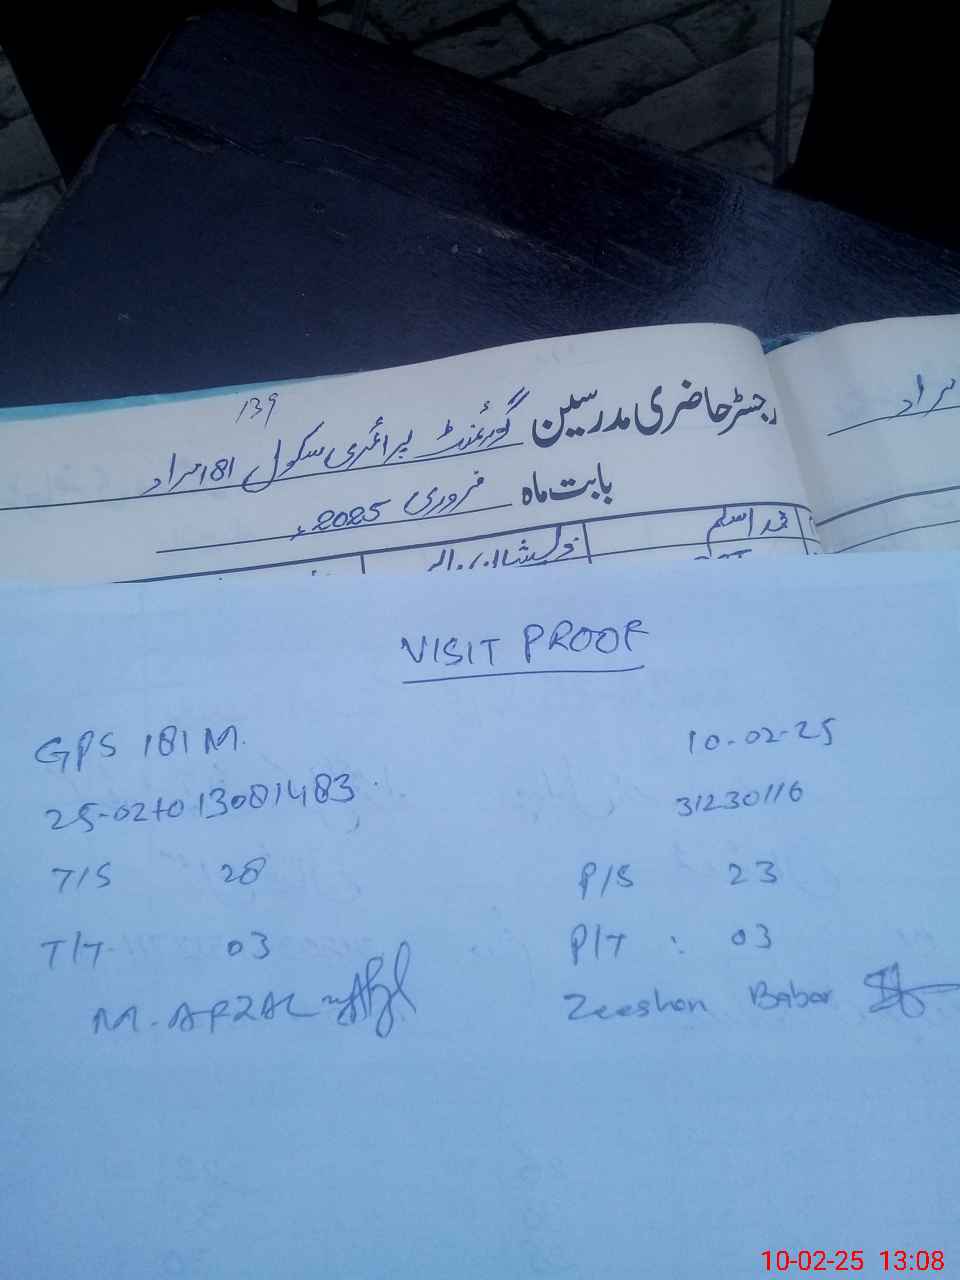 139
رجسٹر حاضری مدرسین گورنمنٹ پرائمری سکول 181 مراد
مراد
بابت ماہ فروری 2025ء
محمد اسلم
VISIT PROOF
GPS 181 M.
10-02-25
31230116
T/S 28
P/S 23
T/T 03
P/T : 03
M. AFZAL
Zeeshan Babar
10-02-25 13:08